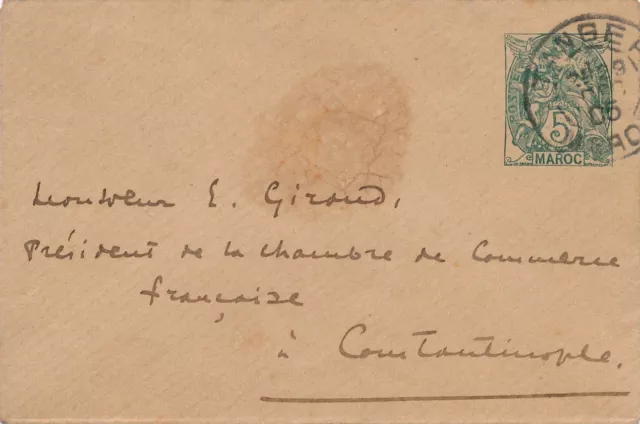 TANGER
05
POSTES
5
MAROC
Monsieur E. Giraud,
Président de la Chambre de Commerce
française
à Constantinople.